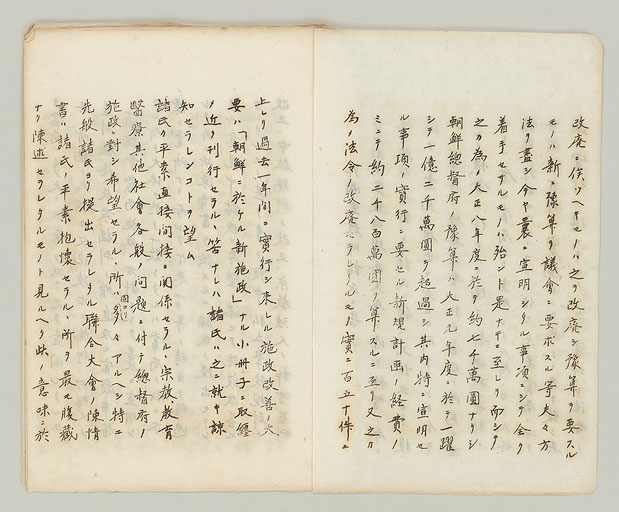 改廃ニ俟ツヘキモノハ之ヲ改廃シ豫算ヲ要スル
モノハ新ニ豫算ヲ議会ニ要求スル等夫々方
法ヲ盡シ今ヤ曩ニ宣明シタル事項ニシテ全ク
着手セサルモノハ殆ント是ナキニ至レリ而シテ
之カ為メ大正八年度ニ於テ約七千萬圓ナリシ
朝鮮總督府ノ豫算ハ大正九年度ニ於テ一躍
シテ一億二千萬圓ヲ超過シ其内特ニ宣明セ
ル事項ノ實行ニ要セル新規計画ノ経費ノ
ミニテ約二千八百萬圓ヲ算スルニ至リ又之カ
為メ法令ノ改廃セラレタルモノ實ニ百五十件ニ
上レリ過去一年間ニ實行シ来レル施政改善ノ大
要ハ「朝鮮ニ於ケル新施政」ナル小冊子ニ取纏
メ近ク刊行セラルヽ筈ナレハ諸氏ハ之ニ就キ諒
知セラレンコトヲ望ム
諸氏カ平素直接間接ニ関係セラルヽ宗教、教育
醫療其他社會各般ノ問題ニ付テ總督府ノ
施政ニ對シ希望セラルヽ所ハ多々アルヘシ特ニ
先般諸氏ヨリ提出セラレタル聯合大會ノ陳情
書ハ諸氏ノ平素抱懐セラルヽ所ヲ最モ腹蔵
ナク陳述セラレタルモノト見ルヘク此ノ意味ニ於